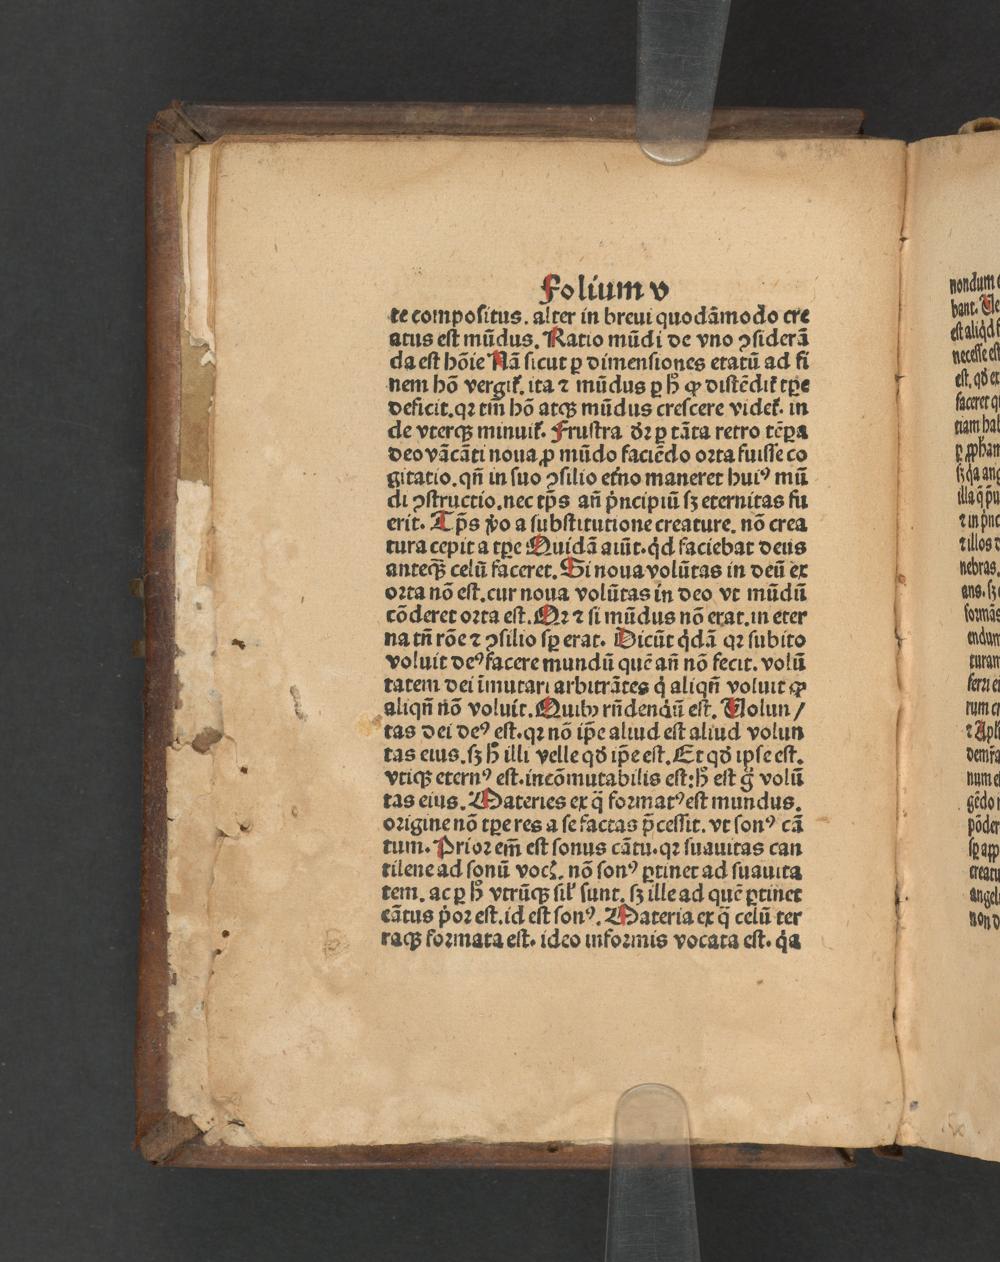 Folium v
te compositus. alter in breui quodāmodo cre
atus est mūdus. Ratio mūdi de vno ꝯsiderā
da est hōie Nā sicut ꝑ dimensiones etatū ad fi
nem hō vergit̄. ita ⁊ mūdus ꝑ h̄ ꝙ distēdit̄ tꝑe
deficit. qꝛ tm̄ hō atqꝫ mūdus crescere videt̄. in
de vterqꝫ minuit̄. Frustra dr̄ ꝑ tāta retro tēꝑa
deo vācāti noua ꝓ mūdo faciēdo orta fuisse co
gitatio. qn̄ in suo ꝯsilio etn̄o maneret huiꝰ mū
di ꝯstructio. nec tp̄s an̄ pͥncipiū sꝫ eternitas fu
erit. Tp̄s v̓o a substitutione creature. nō crea
tura cepit a tꝑe Quidā aiūt. qͥd faciebat deus
anteqꝫ̄ celū faceret. Si noua volūtas in deū ex
orta nō est. cur noua volūtas in deo vt mūdū
cōderet orta est. Qꝛ ⁊ si mūdus nō erat. in eter
na tn̄ rōe ⁊ ꝯsilio sꝑ erat. Dicūt qͥdā qꝛ subito
voluit deꝰ facere mundū quē an̄ nō fecit. volū
tatem dei īmutari arbitrātes qͥ aliqn̄ voluit ꝙ
aliqn̄ nō voluit. Quibꝫ rn̄dendū est. Uolun/
tas dei deꝰ est. qꝛ nō ip̄e aliud est aliud volun
tas eius. sꝫ h̄ illi velle qd̄ ip̄e est. Et qd̄ ipse est.
vtiqꝫ eternꝰ est. incōmutabilis est: h̄ est g̊ volū
tas eius. Materies ex q̄ formatꝰ est mundus.
origine nō tꝑe res a se factas p̄cessit. vt sonꝰ cā
tum. Prior em̄ est sonus cātu. qꝛ suauitas can
tilene ad sonū vocꝭ. nō sonꝰ ꝑtinet ad suauita
tem. ac ꝑ h̄ vtrūqꝫ sil̄ sunt. sꝫ ille ad quē ꝑtinet
cātus pͥor est. id est sonꝰ. Materia ex q̄ celū ter
raqꝫ formata est. ideo informis vocata est. qͥa
nondum
bant.
est aliqd
necesse est
est. qd̄
faceret
tiam
nebras.
formās
endum
turam
gēdo
creatu
angel
non